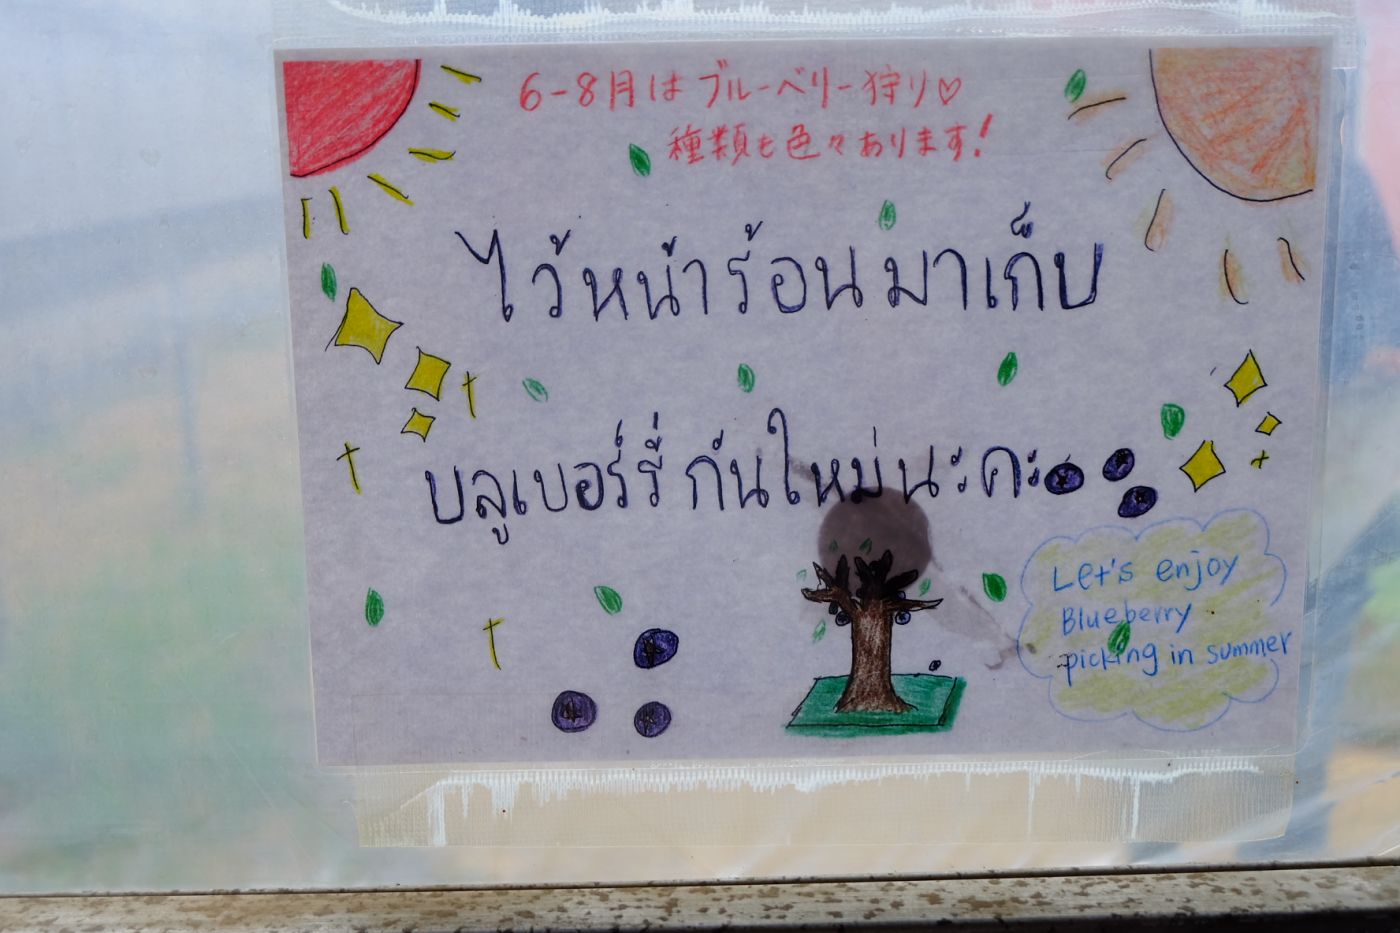 6-8月はブルーベリー狩り♡
種類も色々あります!
ไว้หน้าร้อนมาเก็บ
บลูเบอร์รี่กันใหม่นะคะ
Let's enjoy
Blueberry
picking in summer